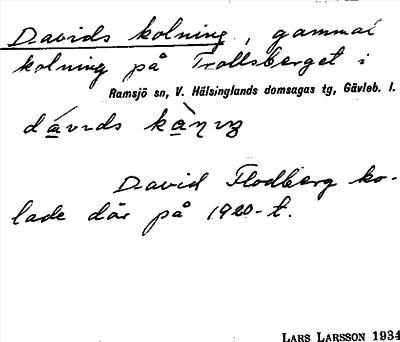 Davids kolning, gammal
kolning på Trollsberget i
Ramsjö sn, V. Hälsinglands domsagas tg, Gävleb. l.
David Flodberg ko-
lade där på 1920-t.
LARS LARSSON 1934